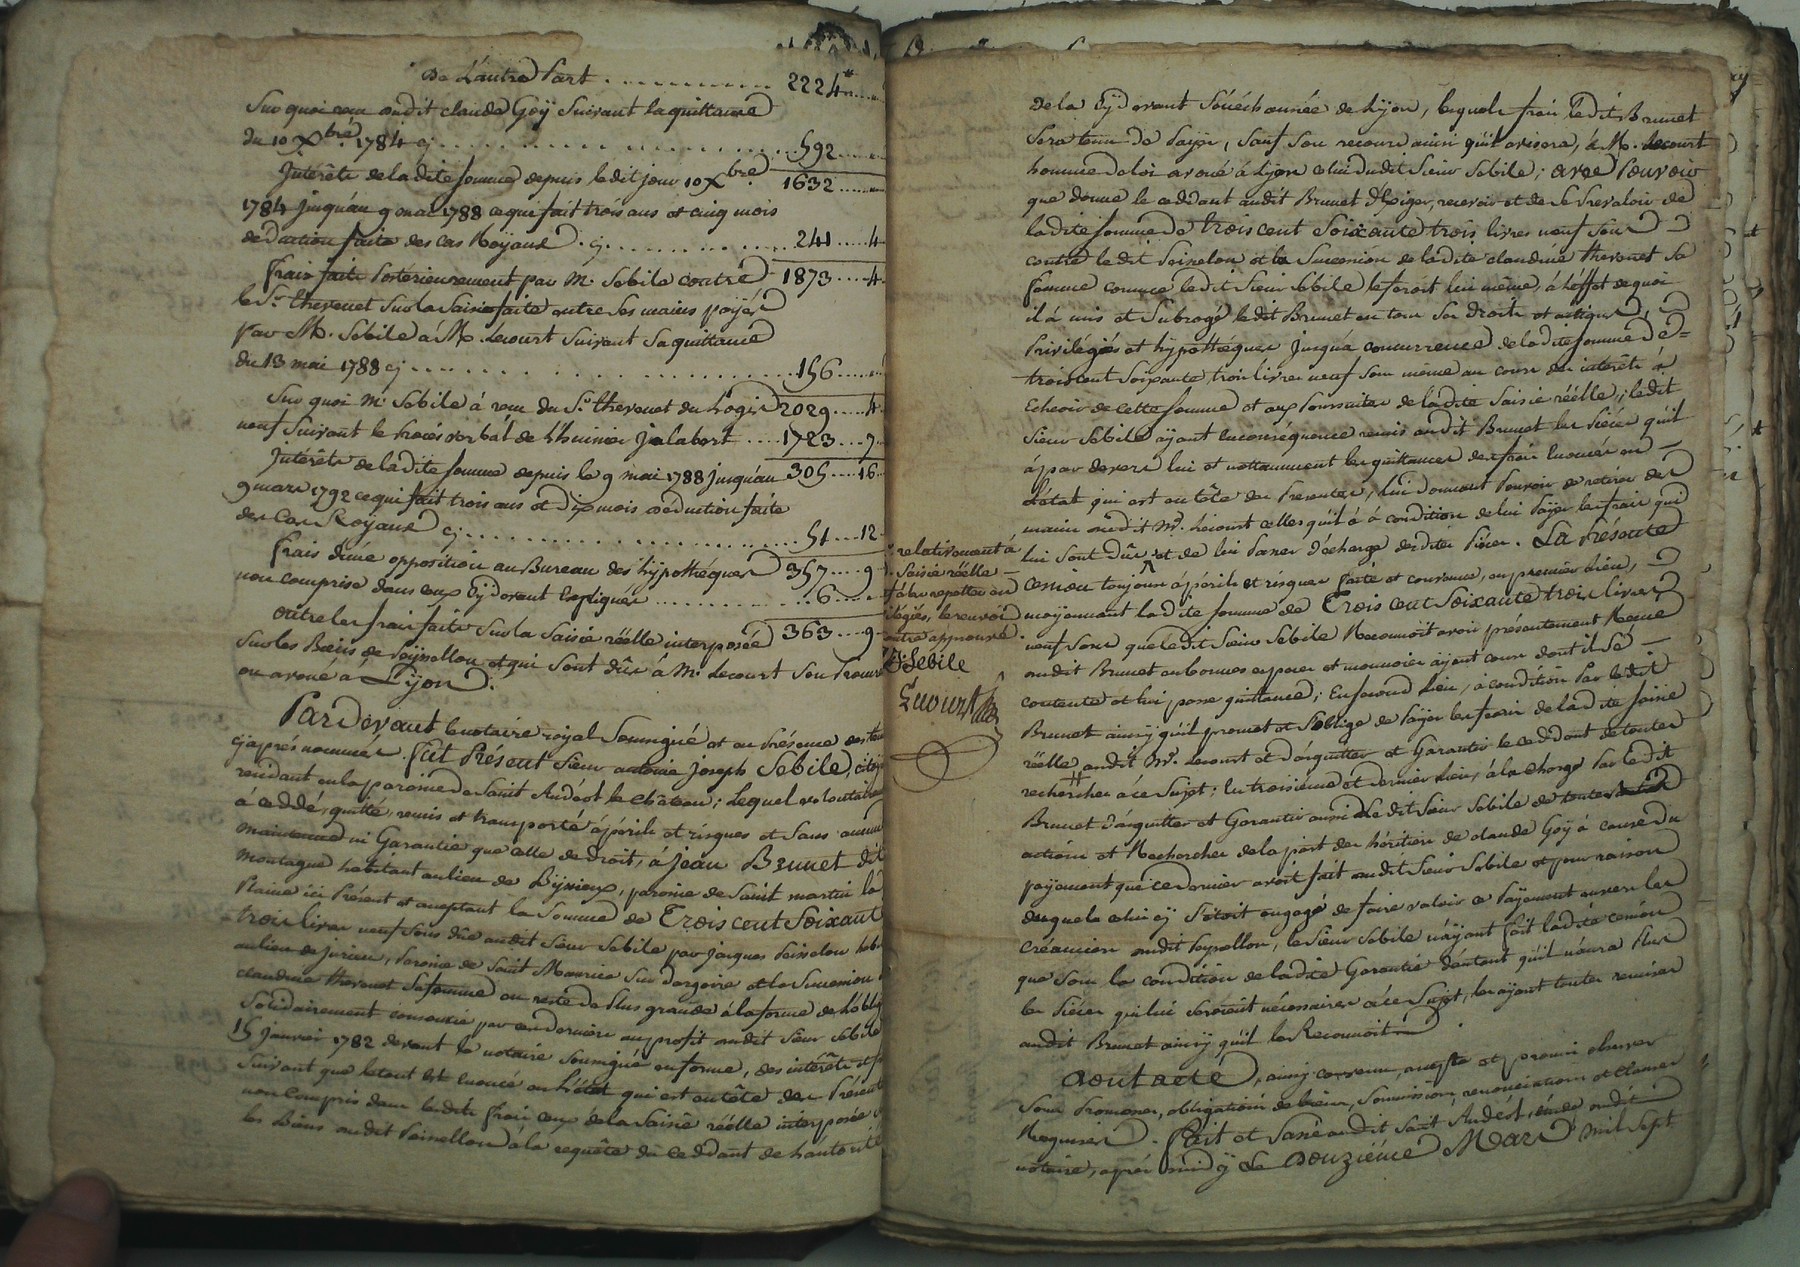 De L'autre Part ............ 2224#
Sur quoi reçu dudit claude Goÿ Suivant la quittance
du 10 Xbre. 1784 cj .................. 592
Intérêts de ladite somme depuis ledit jour 10 Xbre 1632
1784 jusqu'au 9 mai 1788 ce qui fait trois ans et cinq mois
deduction faite des cas Royaux cj ............ 241 .... 4
frais faits Postérieurement par M. Sebile contre 1873 .... 4
le Sr. thevenet Sur la Saisie faite entre Ses mains payés
par M. Sebile à M. Lecourt Suivant Sa quittance
du 13 mai 1788 cj .................. 156
Sur quoi M. Sebile à reçu du Sr. thevenet du Logis 2029 .... 4
neuf Suivant le Procès verbal de L'huissier Jalabert .... 1723 ... 7
Intérêts de ladite somme depuis le 9 mai 1788 jusqu'au 305 .... 16
9 mars 1792 ce qui fait trois ans et Dix mois déduction faite
des Cas Royaux cj .................. 51 ... 12
frais d'une opposition au Bureau des hÿpothéques 357 .... 9
non comprise dans ceux Cÿ devant Expliqués ............ 6
outre les frais faits Sur la Saisie réélle interposée 363 ... 9
Sur les Biens de Peÿssellon et qui Sont dûs à M. Lecourt Son Procur
ou avoué à Lÿon.
Pardevant le notaire royal Soussigné et en Présence des tem
cÿ après nommés. fut Présent Sieur antoine Joseph Sebile, citoÿ
residant en la paroisse de Saint Andéol le Château ; Lequel volontairem
à ceddé, quitté, remis et transporté à périls et risques et Sans aucune
maintenue ni Garantie que celle de droit, à Jean Brunet dit
montagne habitant au lieu de Bissieux, paroisse de Saint martin la
Plaine ici Présent et acceptant la Somme de Trois cent Soixante
trois livres neuf Sous dûe audit Sieur Sebile par Jacques Peisselon hab
au lieu de Jurieu, Paroisse de Saint Maurice Sur dargoire et la Succession
claudine thevenet Sa femme ou reste de Plus grande à la forme de L'oblig
Solidairement consentie par ces derniers au profit dudit Sieur Sebile
15 janvier 1782 devant le notaire Soussigné en forme, des intérêts et fr
Suivant que le tout Est Enoncé en L'état qui est en tête des Présent
non Compris dans lesdits frais ceux de la Saisie réélle interposée s
les Biens dudit Peissellon à la requête du ceddant de L'autorité
de la Cÿ devant Sénéchaussée de Lÿon, lesquels frais ledit Brunet
Sera tenu de Païer, Sauf Son recours ainsi qu'il avisera, à M. Lecourt
homme de loi avoué à Lÿon celui dudit Sieur Sebile ; avec Pouvoir
que donne le ceddant audit Brunet d'Exiger, recevoir et de Se Prevaloir de
ladite Somme de trois cent Soixante trois livres neuf Sous
contre ledit Peisselon et la Succession de ladite claudine thevenet Sa
femme comme ledit Sieur Sebile le feroit lui même, à L'effet de quoi
il à mis et Subrogé ledit Brunet en tous Ses droits et actions,
Privilégés et hÿpothéques Jusqu'à concurrence de ladite Somme de
trois cent Soixante trois livres neuf Sous même au cours des intérêts à
Echeoir de cette Somme et aux Poursuites de ladite Saisie réélle ; ledit
Sieur Sebile aÿant en conséquence remis audit Brunet les Pièces qu'il
à par devers lui et nottamment les quittances des frais Enoncés en
L'état qui est en tête des Presentes, lui donnant Pouvoir de retirer des
mains dudit Mr. Lecourt celles qu'il à à condition de lui Païer les frais qui
lui Sont Dûs et de lui Passer décharge desdites Pièces. La Présente
relativement à
Saisie réélle
cession toujours à périls et risques faite et convenue, en premier Lieu,
moÿennant ladite Somme de Trois cent Soixante trois livres
le renvoi
autre approuvé.
neuf Sous que ledit Sieur Sebile Reconnoit avoir présentement Recue
Sebile
dudit Brunet en bonnes especes et monnoies aÿant cours dont il Se
contente et lui passe quittance ; En Second Lieu, à condition Par ledit
Lecourt
Brunet ainsÿ qu'il promet et S'oblige de Païer les frais de ladite Saisie
réélle audit Mr. Lecourt et d'acquitter et Garantir le ceddant de toutes
recherches à ce Sujet ; En troisieme et dernier Lieu, à la charge Par ledit
Brunet d'acquitter et Garantir aussi Ledit Sieur Sebile de toutes
actions et Recherches de la part des héritiers de claude Goÿ à cause du
païement que ce dernier avoit fait audit Sieur Sebile et pour raison
duquel celui cÿ S'etoit engagé de faire valoir ce Païement envers les
creanciers dudit Peÿssellon, le Sieur Sebile n'aÿant fait ladite cession
que Sous la condition de ladite Garantie d'autant qu'il n'aura Plus
les Pièces qui lui Seroient nécessaires à ce Sujet, les aÿant toutes remises
audit Brunet ainsÿ qu'il les Reconnoit.
dont acte, ainsÿ convenu, accepté et promis observer
Sous Promesses, obligations de biens, Soumissions, renonciations et Clauses
Requises. Fait et Passé audit Saint Andéol, étude dudit
notaire, après midÿ Le Douzième Mars mil Sept